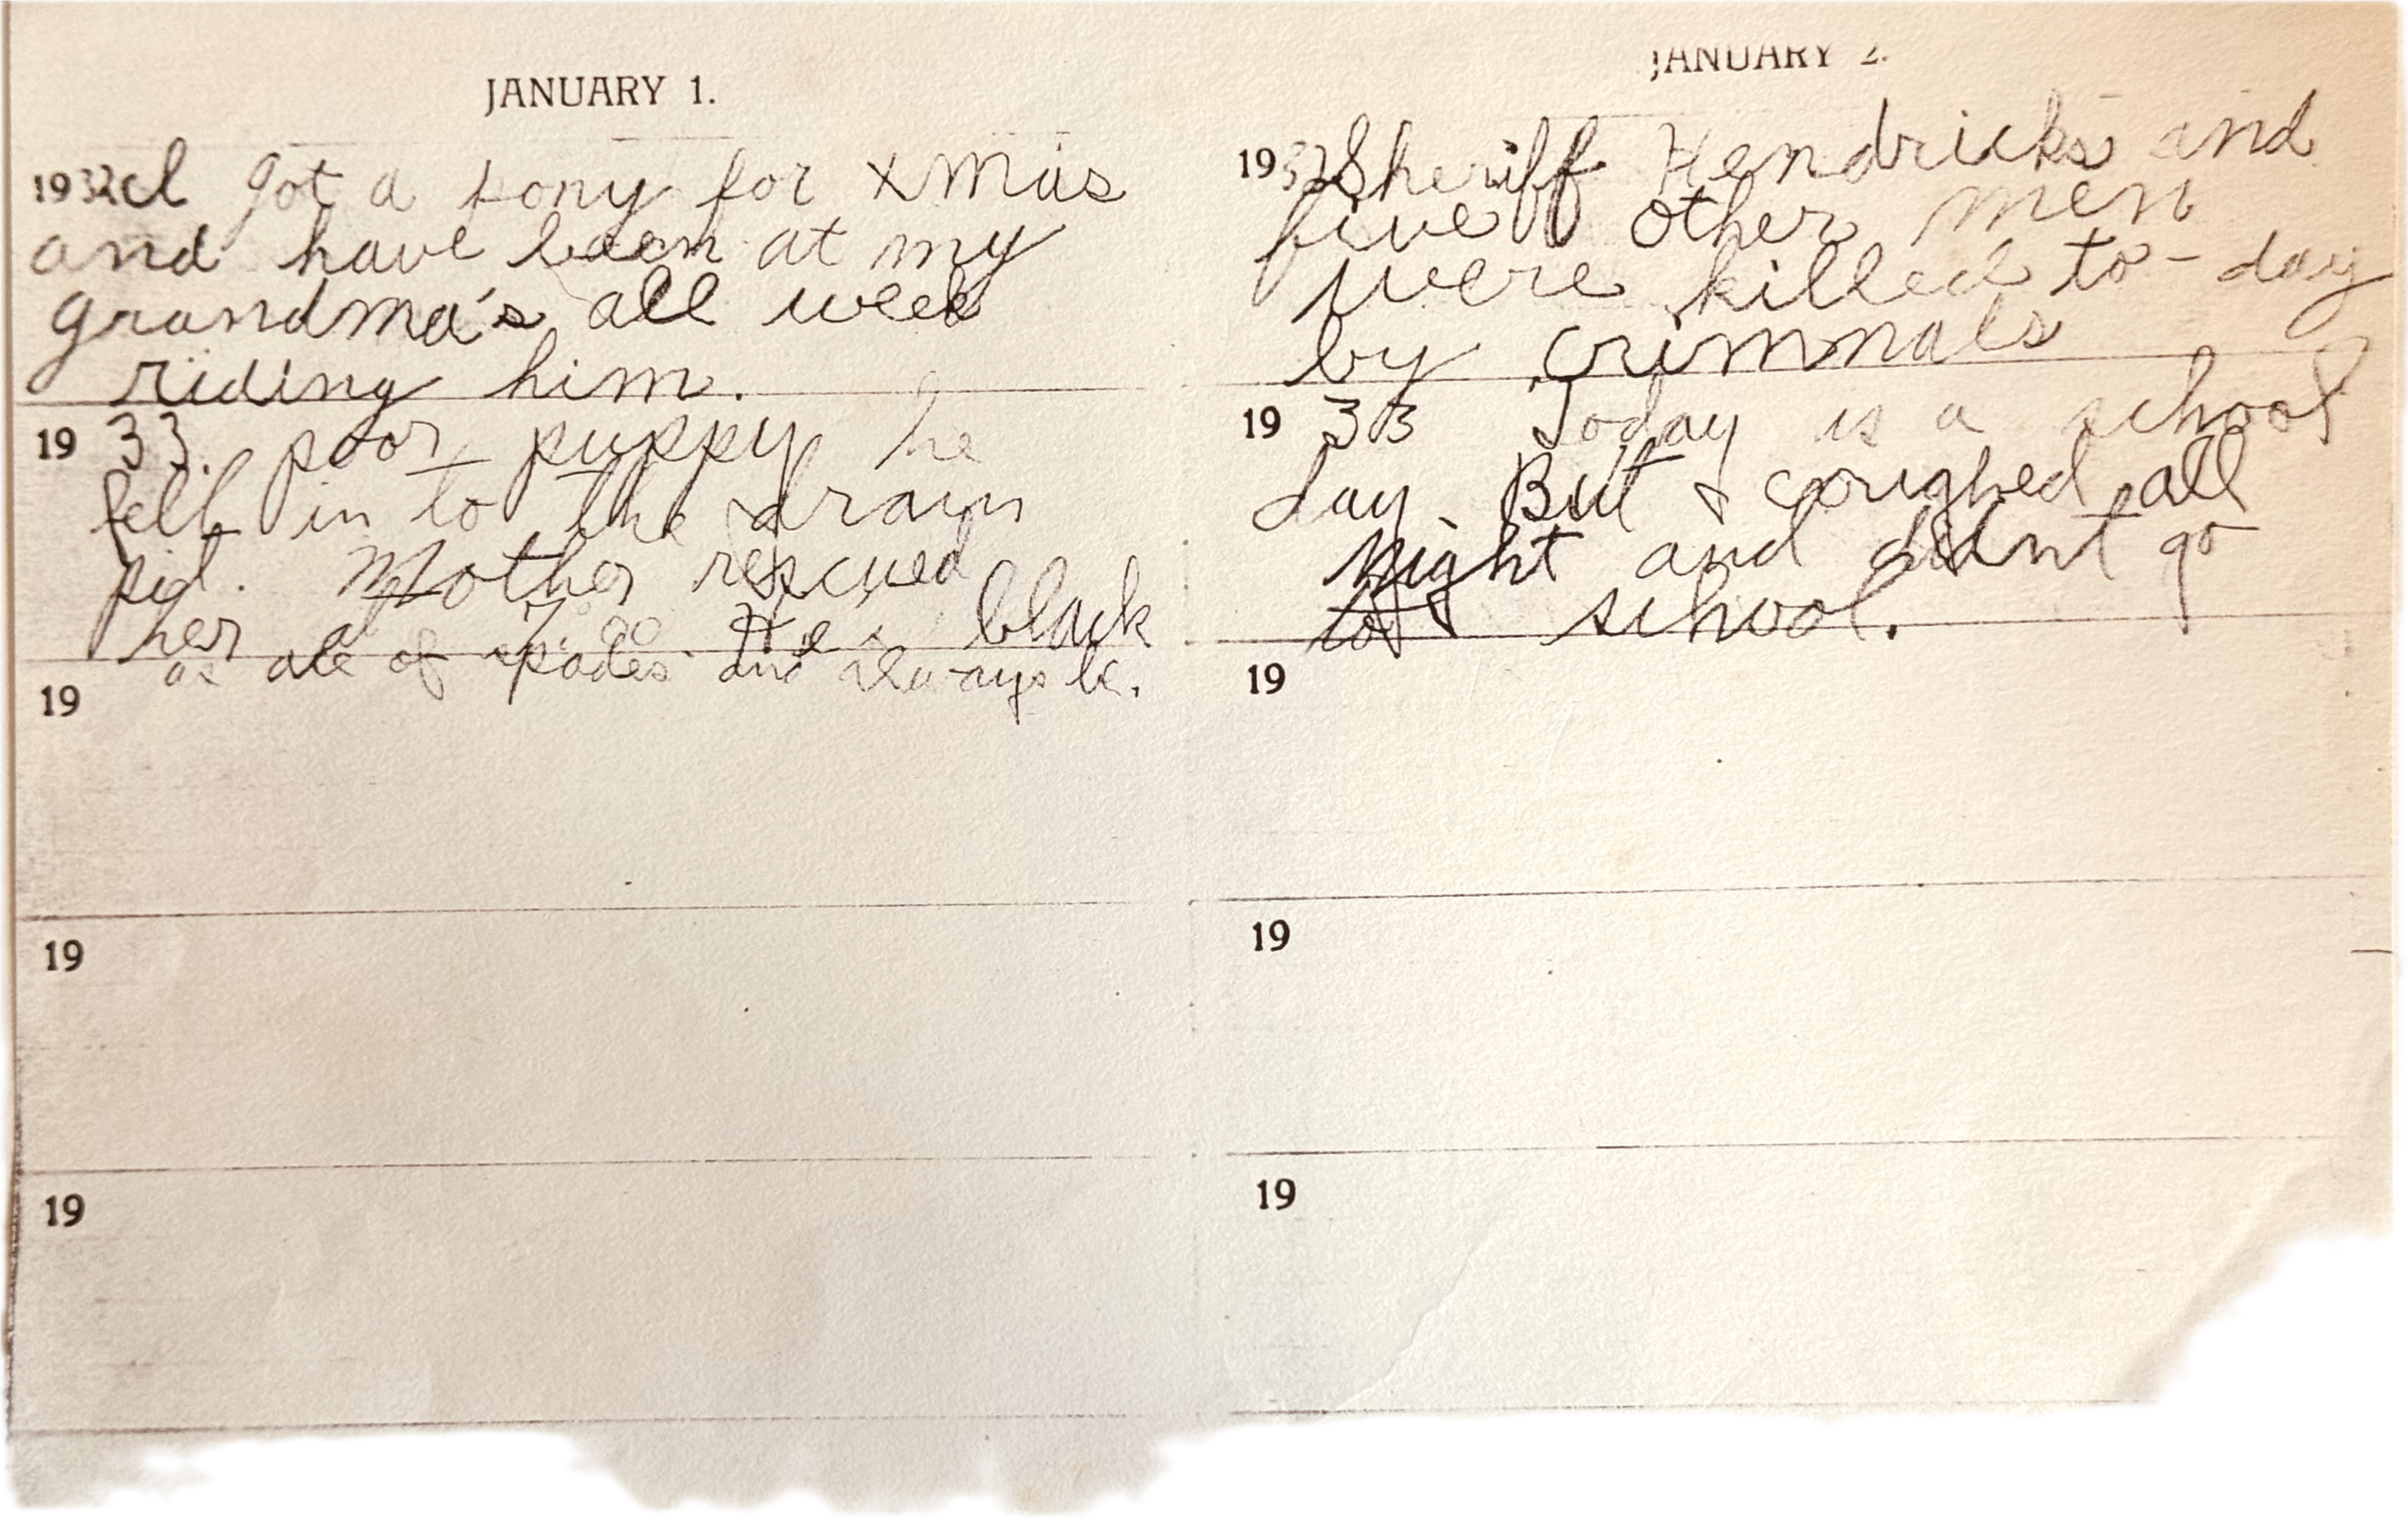 JANUARY 1.
1932 I got a pony for xmas
and have been at my
grandma's all week
riding him.
19 33. poor puppy he
fell in to the drain
pid. Mother rescued
her He black
as ace of spades. and always be.
19
19
19
JANUARY 2.
1932 Sheriff Hendricks and
five other men
were killed to-day
by crimnals
19 33 Today is a school
day. But I coughed all
night and didnt go
to school.
19
19
19